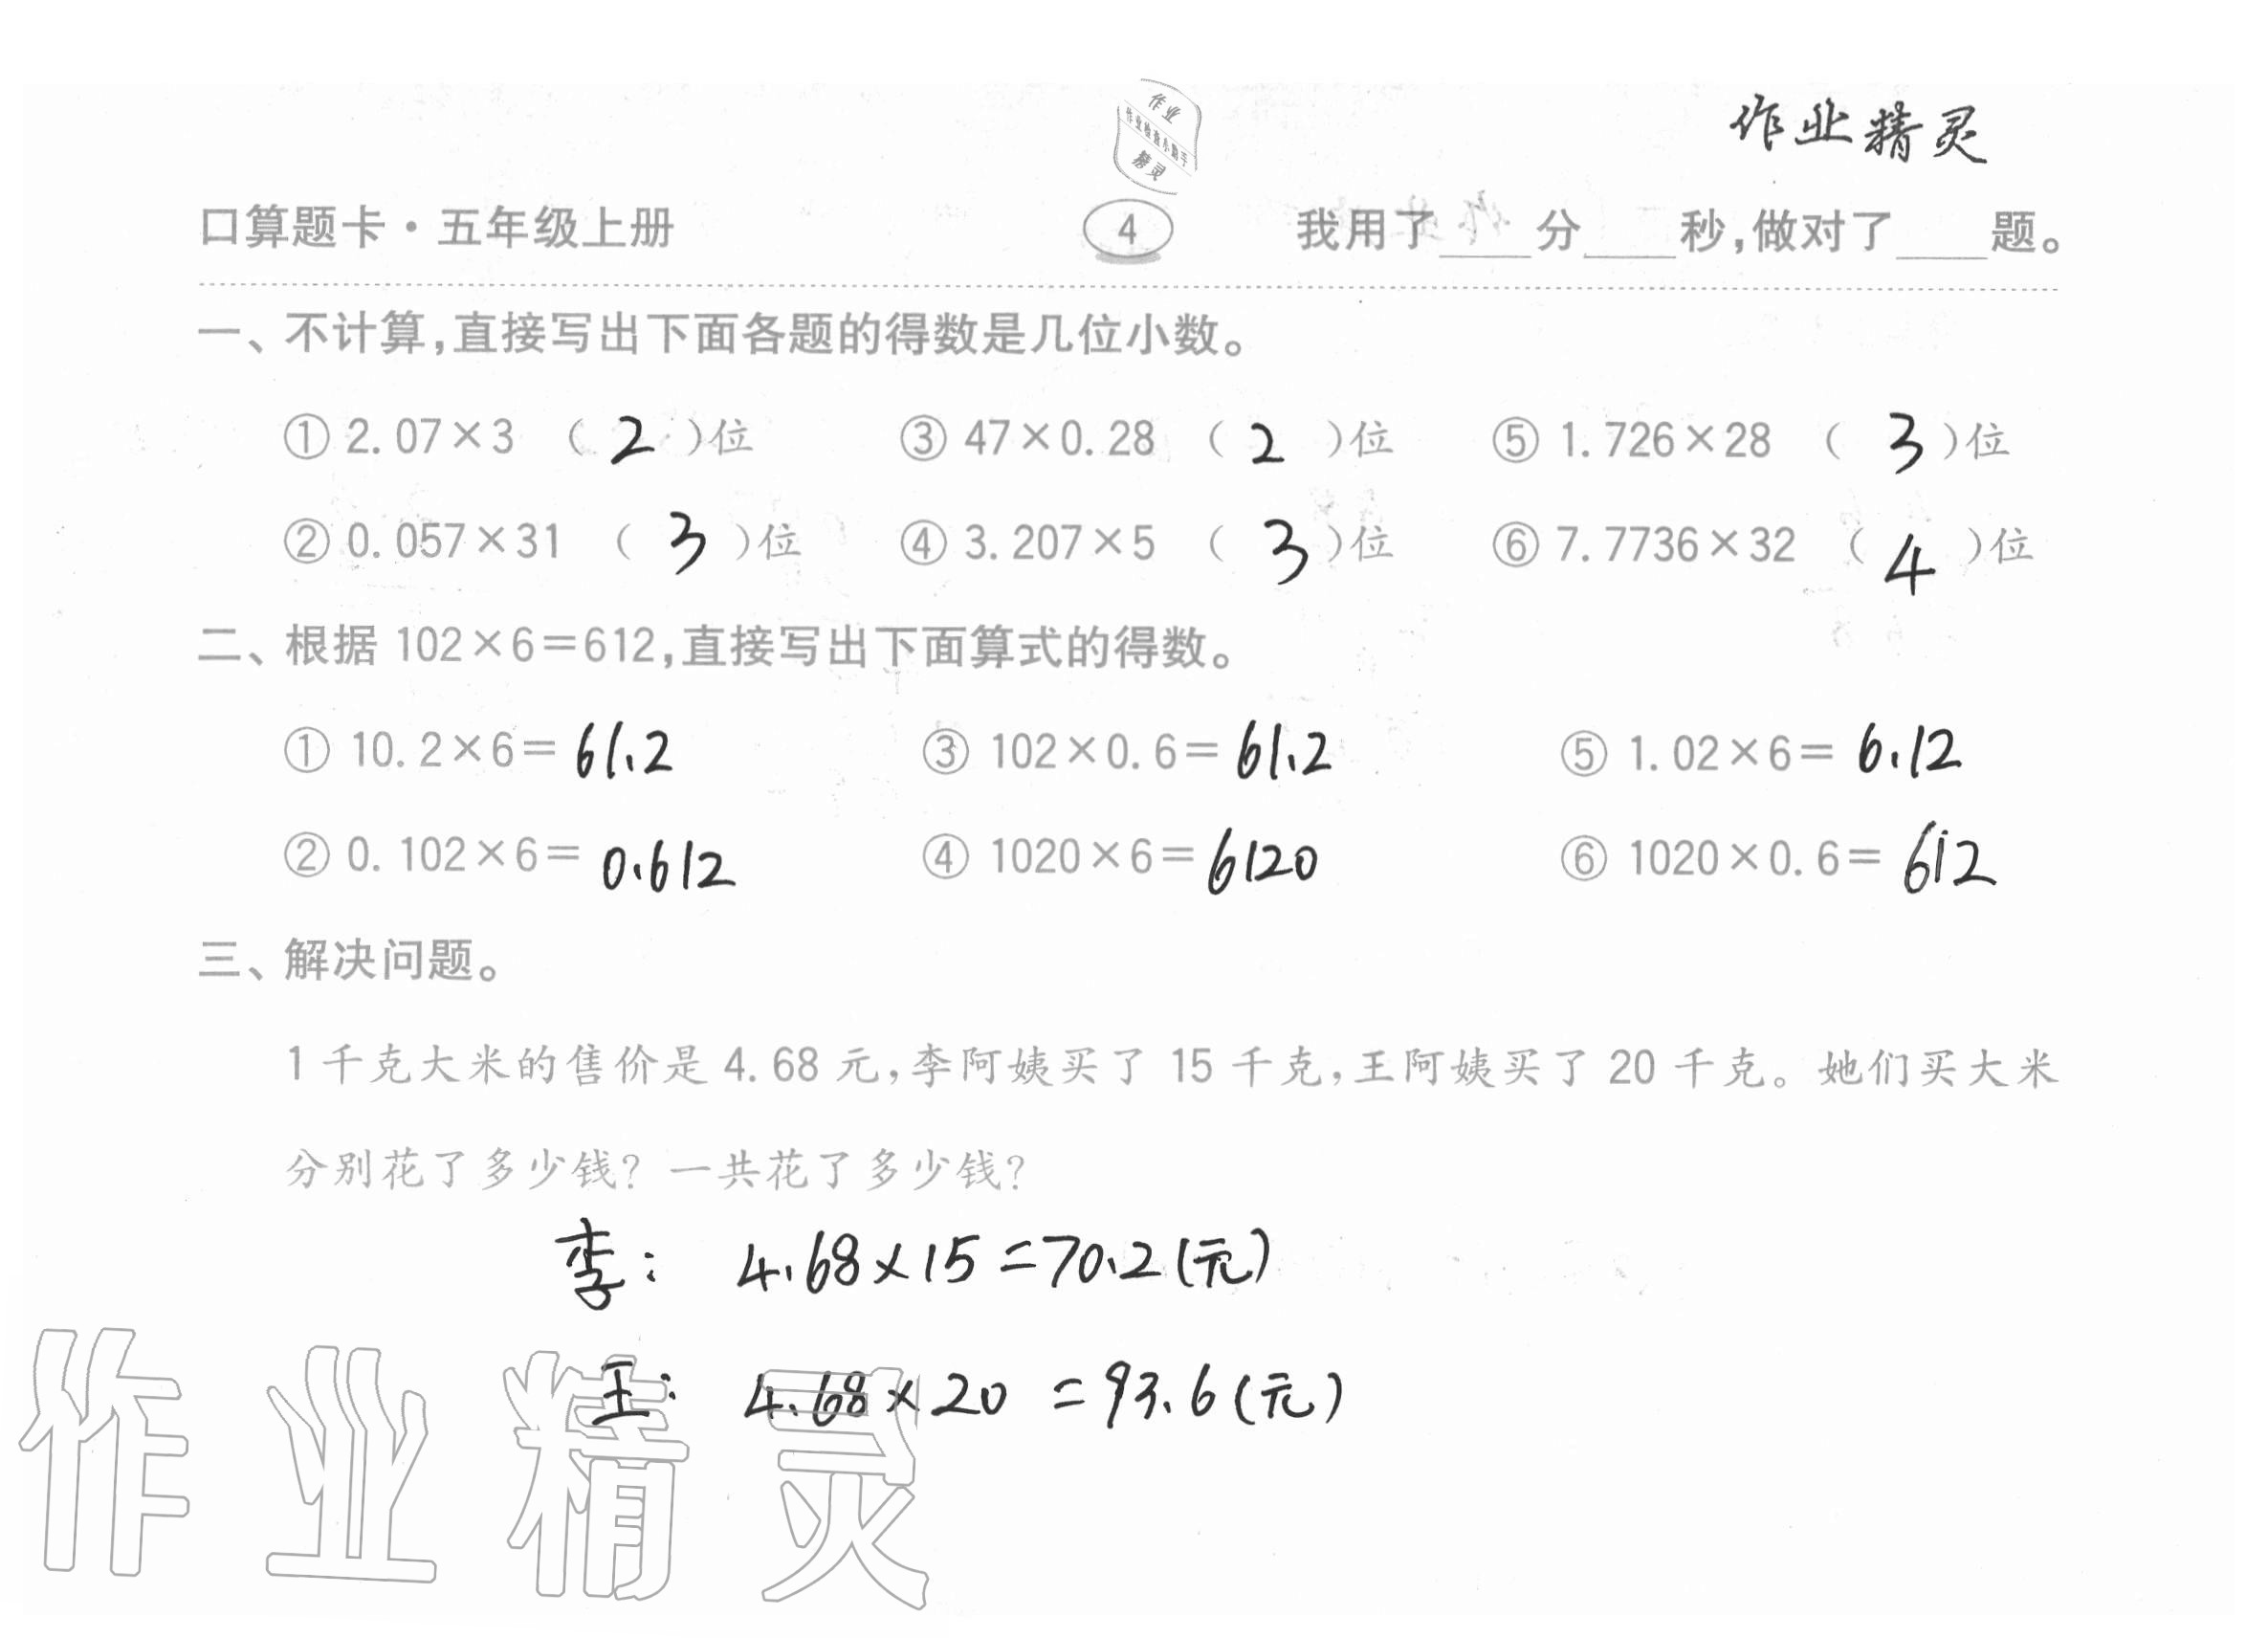 作业
作业检查小助手
精灵
作业精灵
口算题卡·五年级上册 4 我用了____分____秒,做对了____题。
一、不计算,直接写出下面各题的得数是几位小数。
① 2.07×3 ( 2 )位 ③ 47×0.28 ( 2 )位 ⑤ 1.726×28 ( 3 )位
② 0.057×31 ( 3 )位 ④ 3.207×5 ( 3 )位 ⑥ 7.7736×32 ( 4 )位
二、根据 102×6=612,直接写出下面算式的得数。
① 10.2×6= 61.2 ③ 102×0.6= 61.2 ⑤ 1.02×6= 6.12
② 0.102×6= 0.612 ④ 1020×6= 6120 ⑥ 1020×0.6= 612
三、解决问题。
1 千克大米的售价是 4.68 元,李阿姨买了 15 千克,王阿姨买了 20 千克。她们买大米
分别花了多少钱? 一共花了多少钱?
李: 4.68×15=70.2(元)
王: 4.68×20=93.6(元)
作业精灵